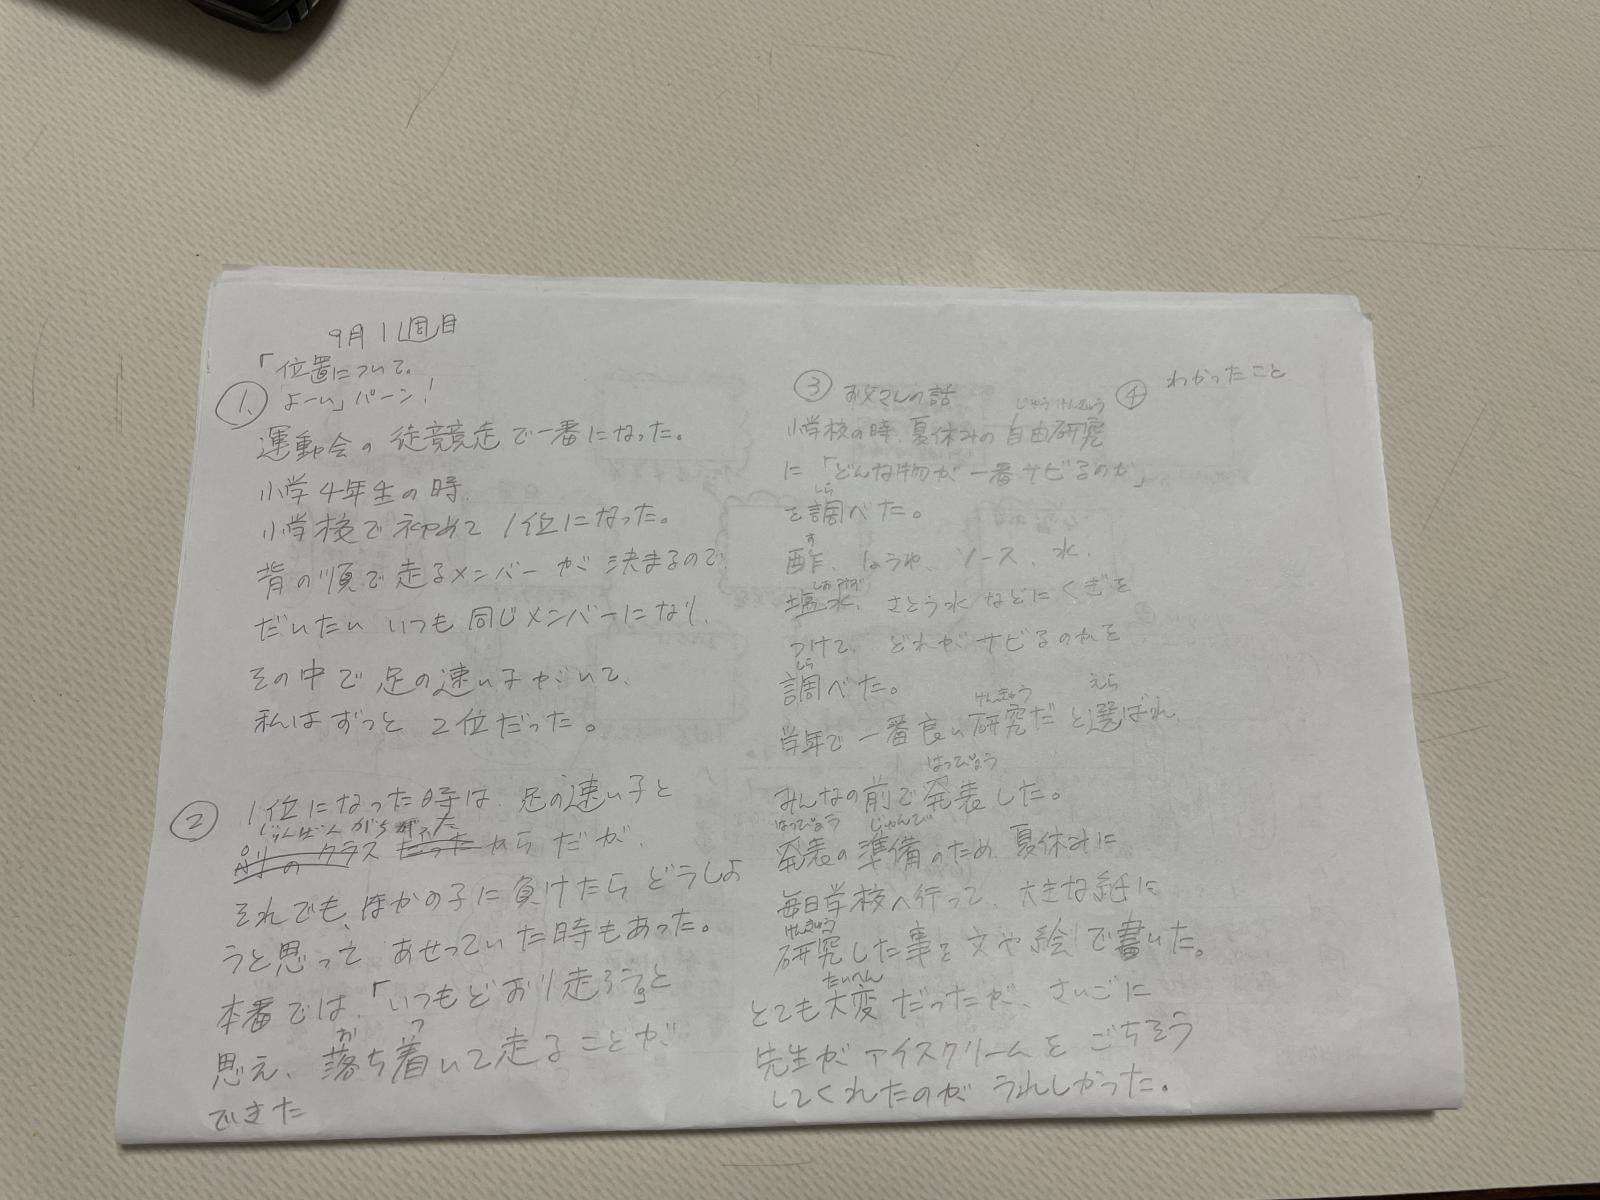 9月1週目
「位置について。
① よーい」パーン!
運動会の徒競走で一番になった。
小学4年生の時、
小学校で初めて1位になった。
背の順で走るメンバーが決まるので
だいたいいつも同じメンバーになり、
その中で足の速い子がいて、
私はずっと2位だった。
② 1位になった時は、足の速い子と
じゅんばんがちがった
別のクラスだったからだが、
それでも、ほかの子に負けたらどうしよ
うと思ってあせっていた時もあった。
本番では、「いつもどおり走ろう」と
お つ
思え、落ち着いて走ることが
できた
③ お父さんの話
じゆうけんきゅう
小学校の時、夏休みの自由研究
に「どんな物が一番サビるのか」
しら
を調べた。
す
酢、しょうゆ、ソース、水、
しおみず
塩水、さとう水などにくぎを
つけて、どれがサビるのかを
しら
調べた。
けんきゅう えら
学年で一番良い研究だと選ばれ、
はっぴょう
みんなの前で発表した。
はっぴょう じゅんび
発表の準備のため、夏休みに
毎日学校へ行って、大きな紙に
けんきゅう
研究した事を文や絵で書いた。
たいへん
とても大変だったが、さいごに
先生がアイスクリームをごちそう
してくれたのがうれしかった。
④ わかったこと